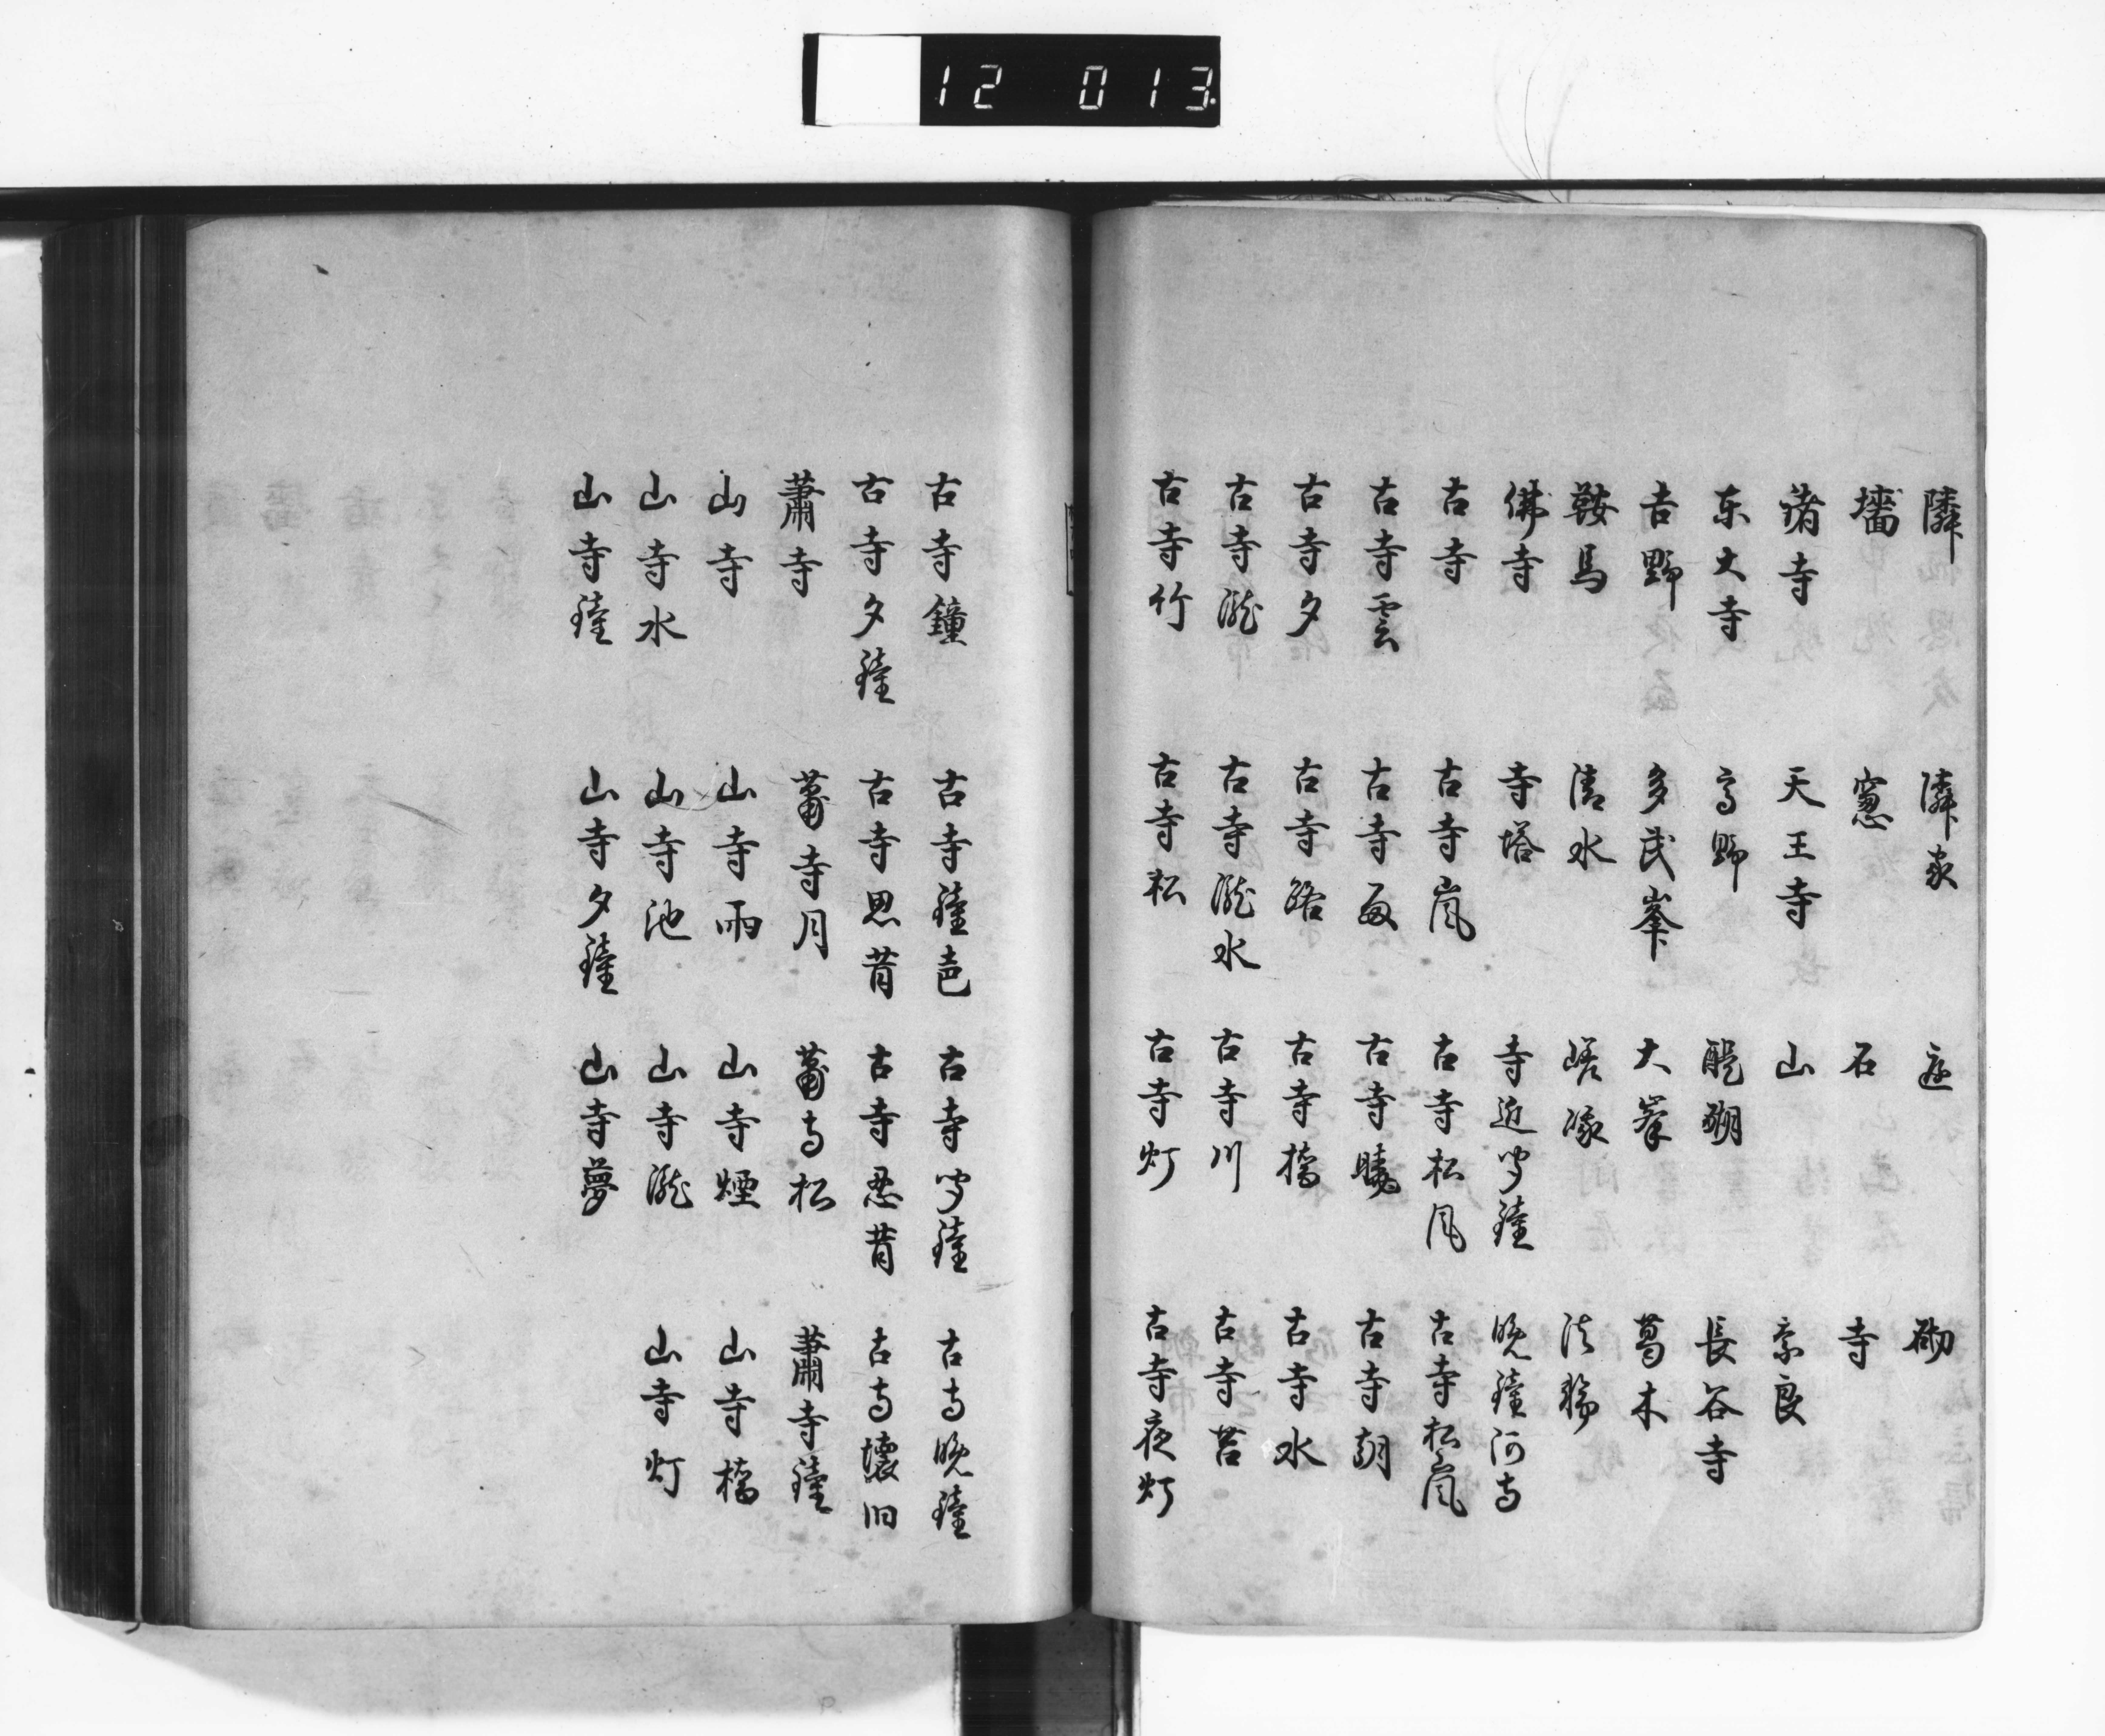 12 013
隣 隣家 庭 砌
墻 窓 石 寺
諸寺 天王寺 山 奈良
东大寺 高野 醍醐 長谷寺
吉野 多武峯 大峯 葛木
鞍馬 清水 嵯峨 法輪
佛寺 寺塔 寺近聞鐘 晩鐘何寺
古寺 古寺嵐 古寺松风 古寺松嵐
古寺雲 古寺雨 古寺曉 古寺朝
古寺夕 古寺路 古寺橋 古寺水
古寺瀧 古寺瀧水 古寺川 古寺苔
古寺竹 古寺松 古寺灯 古寺夜灯
古寺鐘 古寺鐘声 古寺聞鐘 古寺晩鐘
古寺夕鐘 古寺思昔 古寺忍昔 古寺懐旧
蕭寺 蕭寺月 蕭寺松 蕭寺鐘
山寺 山寺雨 山寺煙 山寺橋
山寺水 山寺池 山寺瀧 山寺灯
山寺鐘 山寺夕鐘 山寺夢